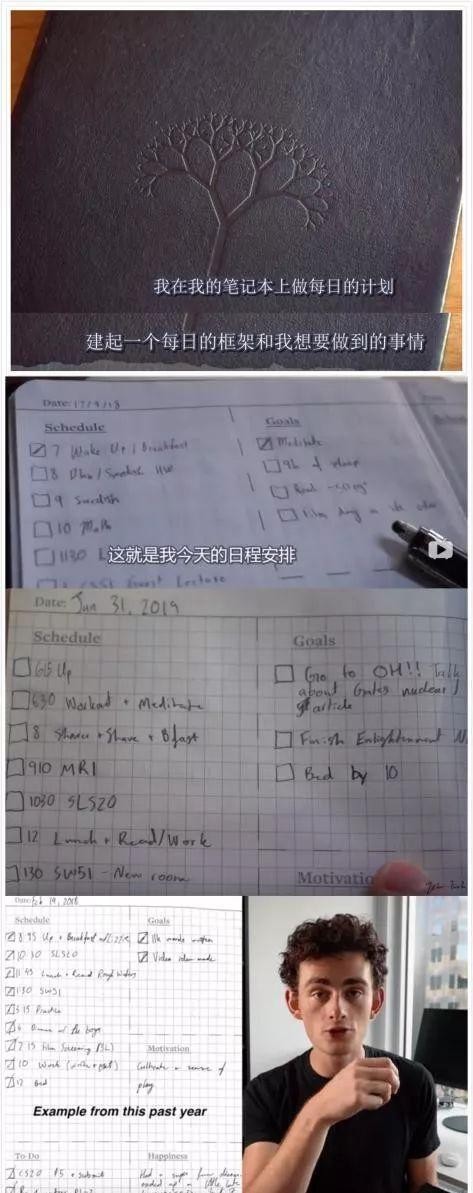 我在我的笔记本上做每日的计划
建起一个每日的框架和我想要做到的事情
Date: 17/9/18
Schedule
7 Wake Up / Breakfast
8 / Swedish HW
9 Swedish
10 Math
1130
Guest Lecture
Goals
Meditate
9h of sleep
Read
Film day in the
这就是我今天的日程安排
Date: Jun 31, 2019
Schedule
615 Up
630 Workout + Meditate
8 Shower + Shave + Bfast
910 MRI
1030 SLS20
12 Lunch + Read/Work
130 SW51 - New room
Goals
Go to OH!! Talk
about Gates nuclear
article
Finish Enlightenment
Bed by 10
Motivation
Date: Feb 19, 2018
Schedule
8 45 Up + Breakfast
10 30 SLS20
11 45 Lunch + Read
1 30 SW51
3 15 Practice
6 Dinner w/ the boys
7 15 Film Screening
10 Work
12 Bed
Goals
11k words written
Video idea made
Motivation
Cultivate a sense of
play
Example from this past year
To Do
CS20 P5 + submit
Happiness
Had a super fun
ended up a little late